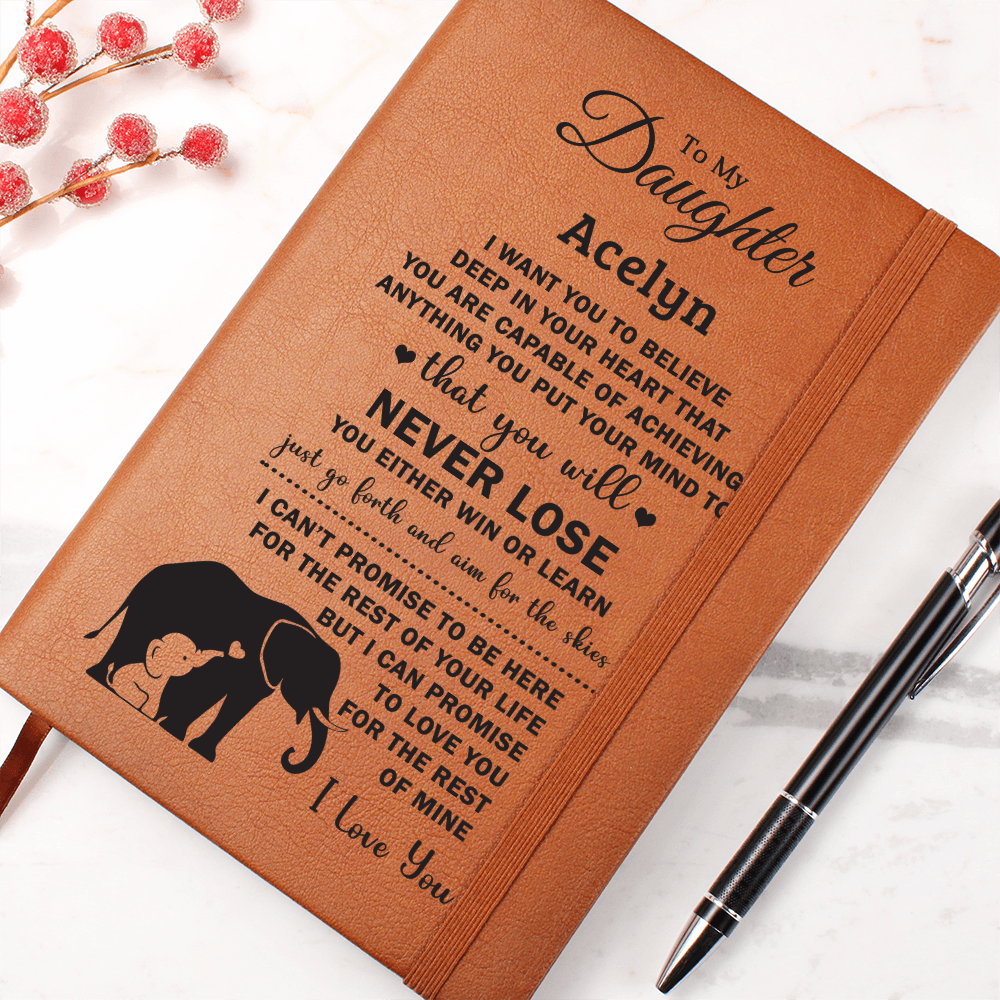 To My
Daughter
Acelyn
I WANT YOU TO BELIEVE
DEEP IN YOUR HEART THAT
YOU ARE CAPABLE OF ACHIEVING
ANYTHING YOU PUT YOUR MIND TO
that you will
NEVER LOSE
YOU EITHER WIN OR LEARN
just go forth and aim for the skies
I CAN'T PROMISE TO BE HERE
FOR THE REST OF YOUR LIFE
BUT I CAN PROMISE
TO LOVE YOU
FOR THE REST
OF MINE
I Love You